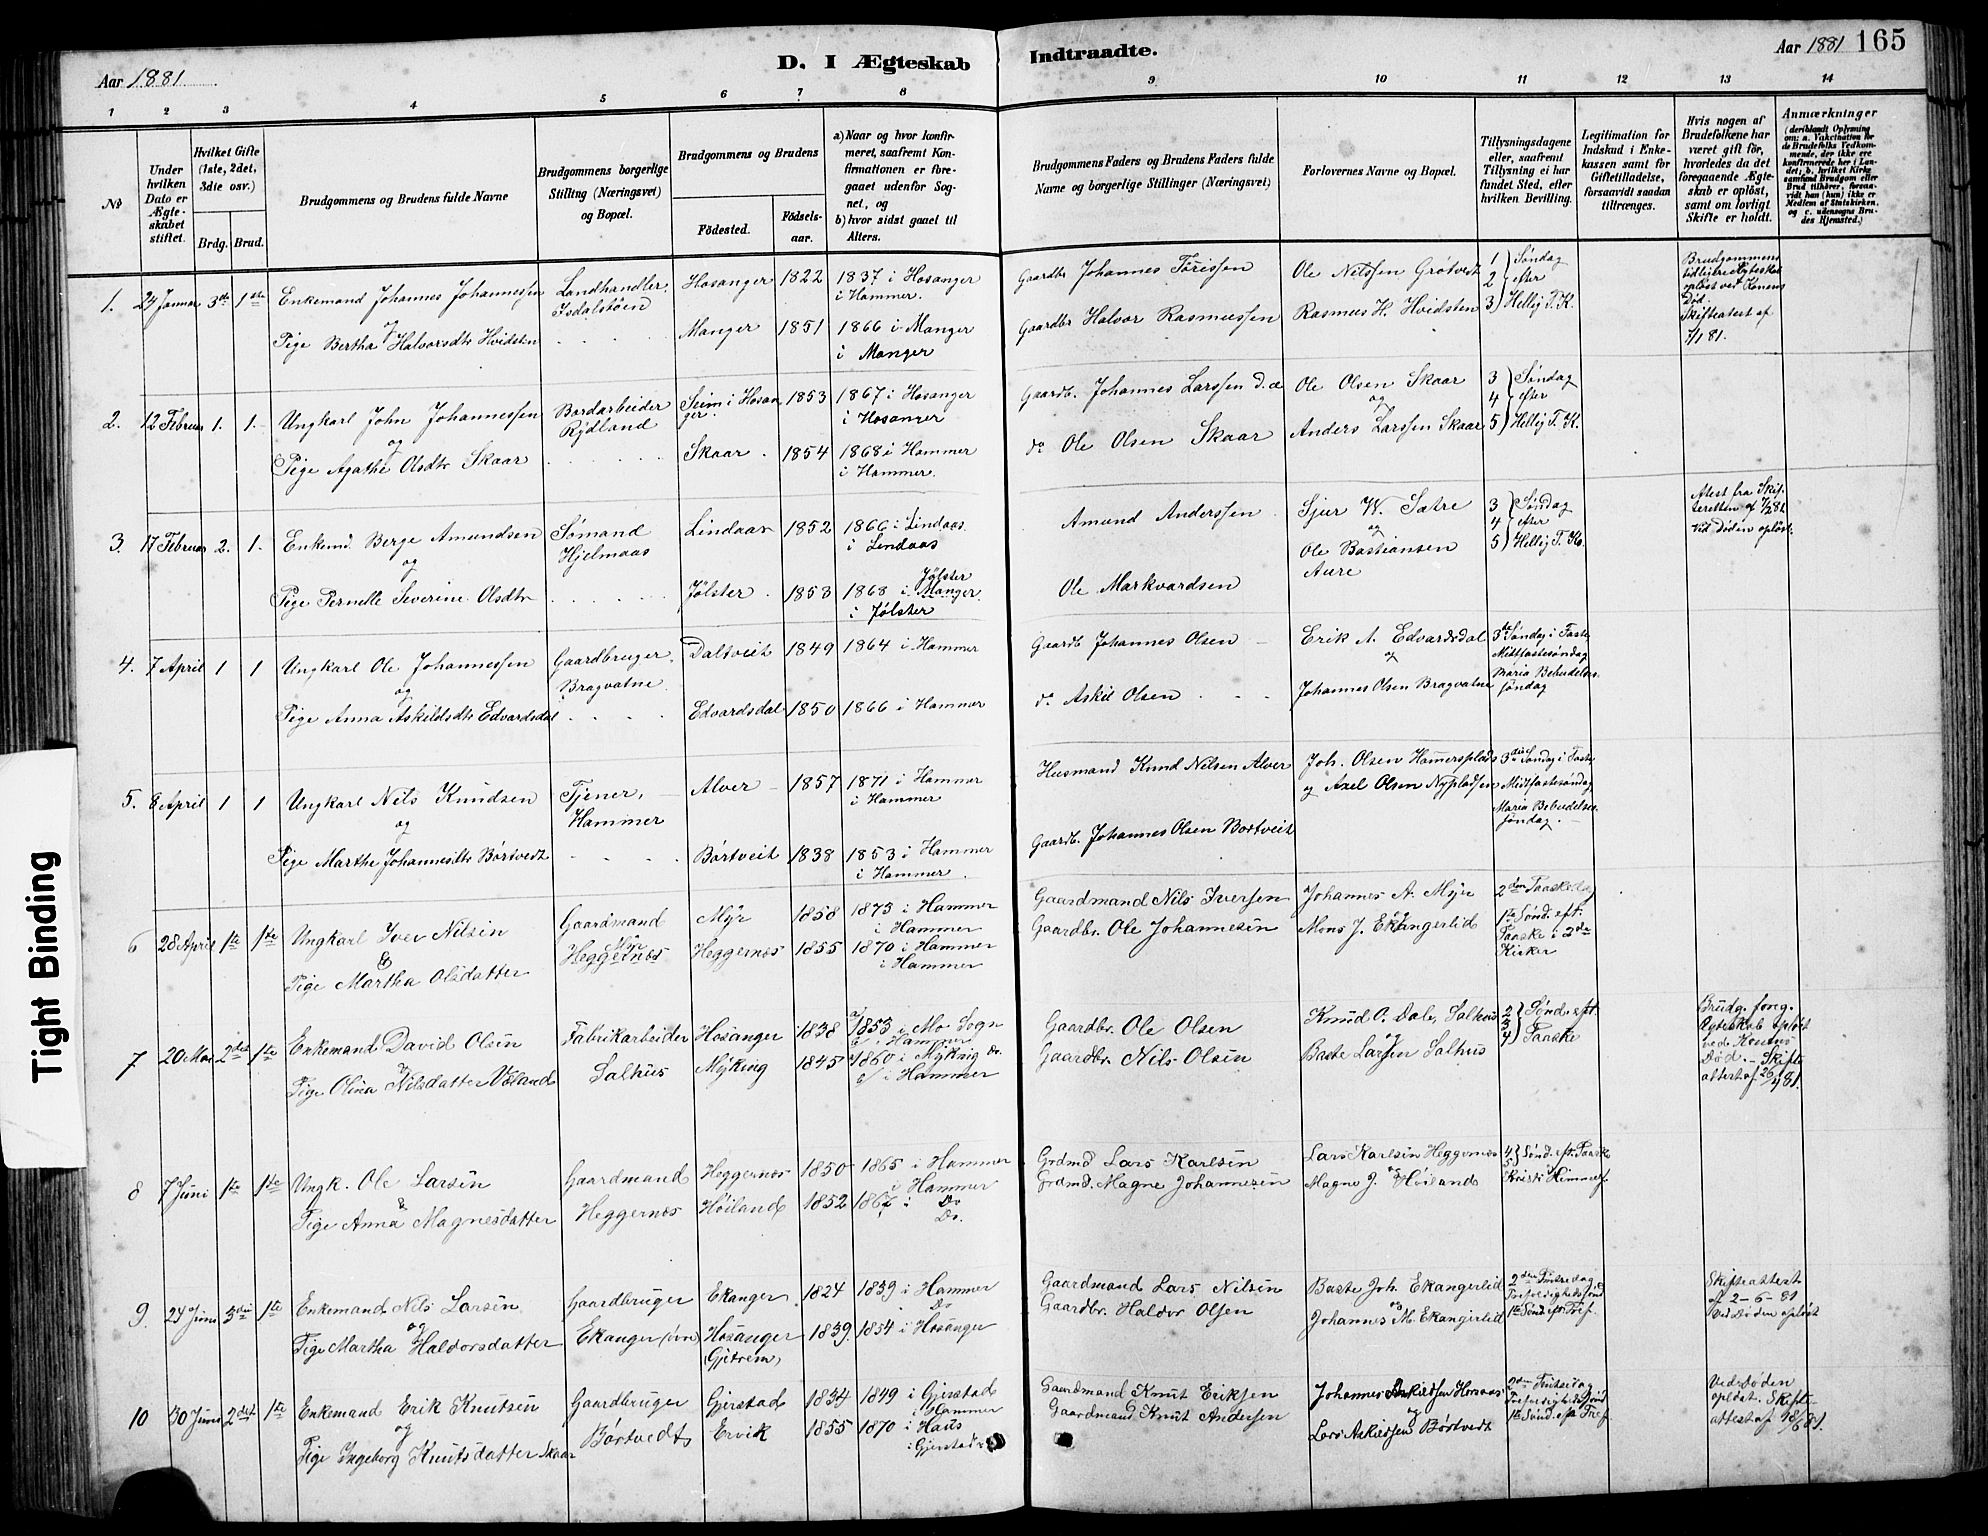 Aar 1881.
D. I Ægteskab
Indtraadte.
Aar 1881 165
1 2 3 4 5 6 7 8 9 10 11 12 13 14
No
Under hvilken Dato er Ægteskabet stiftet.
Hvilket Gifte (1ste, 2det, 3die osv.)
Brdg. Brud.
Brudgommens og Brudens fulde Navne
Brudgommens borgerlige Stilling (Næringsvei) og Bopæl.
Brudgommens og Brudens
Fødested. Fødselsaar.
a) Naar og hvor konfirmeret, saafremt Konfirmationen er foregaaet udenfor Sognet, og
b) hvor sidst gaaet til Alters.
Brudgommens Faders og Brudens Faders fulde Navne og borgerlige Stillinger (Næringsvei)
Forlovernes Navne og Bopæl.
Tillysningsdagene eller, saafremt Tillysning ei har fundet Sted, efter hvilken Bevilling.
Legitimation for Indskud i Enkekassen samt for Giftetilladelse, forsaavidt saadan tiltrænges.
Hvis nogen af Brudefolkene har været gift før, hvorledes da det foregaaende Ægteskab er opløst, samt om lovligt Skifte er holdt.
Anmærkninger
(deriblandt Oplysning om: a. Vakcination for de Brudefolks Vedkommende, der ikke ere konfirmerede her i Landet; b. hvilket Kirkesamfund Brudgom eller Brud tilhører, forsaavidt han (hun) ikke er Medlem af Statskirken, og c. udensogns Brudes Hjemsted.)
1. 24 Januar 3de 1ste Enkemand Johannes Johannessen Landhandler, Hosanger 1822 1837 i Hosanger Gaardbr Johannes Tørissen Ole Nilssen Grøtvedt 1 2 3) Søndag efter Hellig T. K. Brudgommens tidligere Egteskab opløst ved Konens Død. Skifteatest af 7/1 81.
og Isdalstøen i Hammer.
Pige Bertha Halvorsdtr Hvidsten Manger 1851 1866 i Manger Gaardbr Halvor Rasmussen Rasmus H. Hvidsten
i Manger
2. 12 Februar 1. 1. Ungkarl John Johannessen Bordarbeider Seim i Hosanger 1853 1867 i Hosanger Gaardb. Johannes Larssen Ole Olsen Skaar 3 4 5) Søndag efter Hellig T. K.
og Rydland i Hosanger og
Pige Agathe Olsdtr Skaar Skaar 1854 1868 i Hammer do Ole Olsen Skaar Anders Larssen Skaar
i Hammer.
3. 17 Februar 2. 1. Enkemd. Berge Amundsen Sømand Lindaas 1852 1866 i Lindaas. Amund Anderssen Sjur W. Satre 3 4 5) Søndag efter Hellig T. K. Atest fra Skifteretten af 7/2 81. Ved Døden opløst.
og Hjelmaas i Lindaas og
Ole Bastiansen Aure
Pige Pernelle Severine Olsdtr Jølster 1853 1868 i Jølster Manger Ole Markvardsen
i Jølster
4. 7 April 1 1 Ungkarl Ole Johannessen Gaardbruger. Daltveit 1849 1864 i Hammer Gaardb. Johannes Olsen Erik A. Edvardsdal 3de Søndag i Faste, Midtfastesøndag Maria Bebudelses søndag
og Bragvatne og
Pige Anna Askildsdtr Edvardsdal Edvardsdal 1850 1866 i Hammer do Askil Olsen Johannes Olsen Bragvatne
5. 8 April 1 1 Ungkarl Nils Knudsen Tjener, Alver 1857 1871 i Hammer Husmand Knud Nilsen Alver Joh. Olsen Hamersplads 3die Søndag i Faste Midtfastesøndag Maria Bebudelses søndag.
og Hammer i Hammer og Axel Olsen Nypladsen
Pige Martha Johannesdtr Børtvedt Børtveit 1838 1853 i Hammer Gaardb. Johannes Olsen Bortveit
i Hammer
6 28 April 1te 1ste Ungkarl Iver Nilsin Gaardmand Myr 1858 1873 i Hammer Gaardmand Nils Iversen Johannes A. Myr 2den Paaskedag 1ste Sønd. eft. Paaske i 2de Kirker
& Myr i Hammer
Pige Martha Olsdatter Heggernes Heggernæs 1855 1870 i Hammer Gaardbr. Ole Johannesin Mons J. Ekangerlid
i Hammer
7 20 Mai 2det 1ste Enkemand David Olsin Fabrikarbeider Hosanger 1838 a/ 1853 i Mo Sogn Gaardbr. Ole Olsen Knud O. Dale, Salhus 2 3 4) Sønd. eft. Paaske Brudg. foreg. Egteskab opløst ved Konens Død. - Skifteattest af 26/4 81.
b/ i Hammer og
Pige Olina Nilsdatter Væland Salhus Myking 1845 a/ 1860 i Myking do Gaardbr. Nils Olsin Baste Larsen Salhus
b/ i Hammer
8 7 Juni 1te 1ste Ungk. Ole Larsin Gaardmand Heggernæs 1850 1865 i Hammer Grdmd Lars Karlsin Lars Karlsin Heggernæs 4 5) Sønd. eft. Paaske Kristi Himmelf.
& i Hammer og
Pige Anna Magnesdatter Heggernæs Høiland 1852 1867 i Do Grdmd. Magne Johannesin Magne J. Høiland
Do.
9. 23 Juni 3die 1te Enkemand Nils Larsin Gaardbruger Ekanger 1824 1839 i Hammer Gaardmand Lars Nilsin Baste Joh. Ekangerlid 2den Pintsedag Trefoldigheds Sønd 1te Sønd. eft. Tref. Skifteattest af 2-6-81 Ved Døden opløst
og Do og
Pige Martha Haldorsdatter Ekanger (øvre) Hosanger 1839. 1854 i Hosanger Gaardbr. Haldor Olsen Johannes M. Ekangerlid
(Gjetrem)
10 30 Juni 2det 1te Enkemand Erik Knutsin Gaardbruger Gjerstad 1834 1849 i Gjerstad Gaardmand Knut Eriksen Johannes Askildsen Horsaas 2den Pintsedag Trefoldigheds Sønd 1te Sønd. eft. Tref. Ved Døden opløst. Skifteattest af 18/6 81.
og i Hammer og
Pige Ingeborg Knutsdatter Skaar Børtvedt Ervik 1855 1870 i Haus Gaardmand Knut Andersen Lars Askildsen Børtvedt
i Gjerstad
Tight Binding